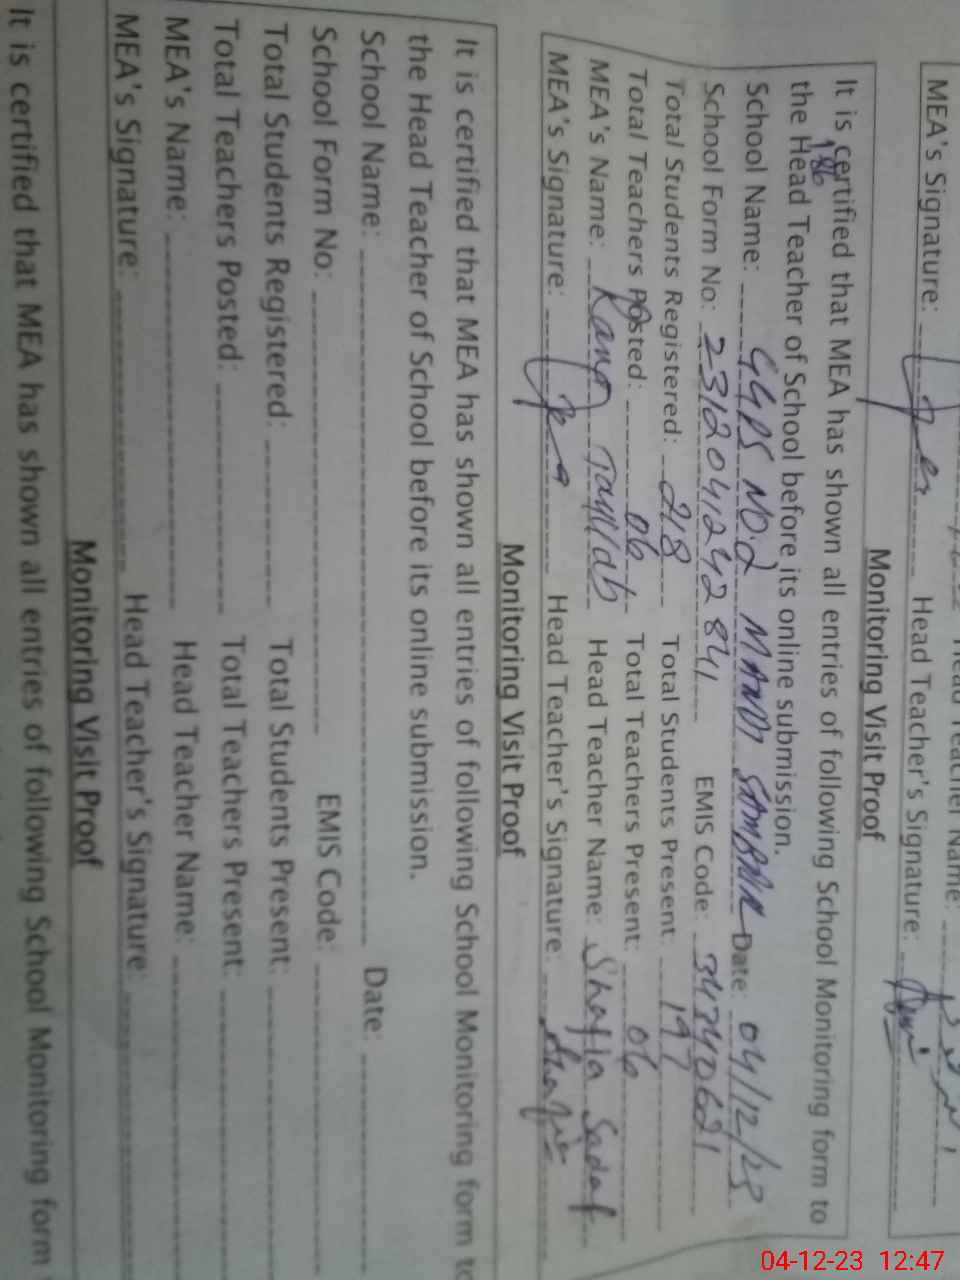 Head Teacher Name:
MEA's Signature: Head Teacher's Signature:
Monitoring Visit Proof
It is certified that MEA has shown all entries of following School Monitoring form to
186
the Head Teacher of School before its online submission.
School Name: GGPS NO.2 MANDI SAMBRIAL Date: 04/12/23
School Form No: 2312041242841 EMIS Code: 34340621
Total Students Registered: 218 Total Students Present: 197
Total Teachers Posted: 06 Total Teachers Present: 06
MEA's Name: Head Teacher Name: Shafia Sadaf
MEA's Signature: Head Teacher's Signature: Shafia
Monitoring Visit Proof
It is certified that MEA has shown all entries of following School Monitoring form to
the Head Teacher of School before its online submission.
School Name: Date:
School Form No: EMIS Code:
Total Students Registered: Total Students Present:
Total Teachers Posted: Total Teachers Present:
MEA's Name: Head Teacher Name:
MEA's Signature: Head Teacher's Signature:
Monitoring Visit Proof
It is certified that MEA has shown all entries of following School Monitoring form
04-12-23 12:47